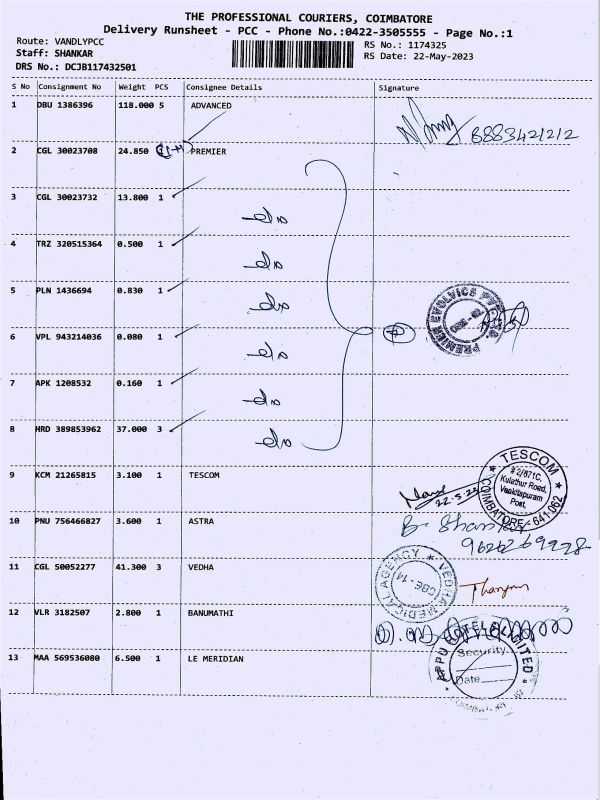 THE PROFESSIONAL COURIERS, COIMBATORE
Delivery Runsheet - PCC - Phone No.:0422-3505555 - Page No.:1
Route: VANDLYPCC
Staff: SHANKAR
DRS No.: DCJB117432501
RS No.: 1174325
RS Date: 22-May-2023
S No Consignment No Weight PCS Consignee Details Signature
1 DBU 1386396 118.000 5 ADVANCED
8883421212
2 CGL 30023708 24.850 PREMIER
3 CGL 30023732 13.800 1
do
4 TRZ 320515364 0.500 1
do
5 PLN 1436694 0.830 1
do
6 VPL 943214036 0.080 1
do
7 APK 1208532 0.160 1
do
8 HRD 389853962 37.000 3
do
PREMIER EVOLVICS
9 KCM 21265815 3.100 1 TESCOM
22-5-23
TESCOM
# 2/671C,
Kulathur Road,
Venkitapuram
Post,
COIMBATORE - 641 062
10 PNU 756466827 3.600 1 ASTRA
11 CGL 50052277 41.300 3 VEDHA
VEDHA MEDICAL AGENCY
CBE - 14
12 VLR 3182507 2.800 1 BANUMATHI
13 MAA 569536080 6.500 1 LE MERIDIAN
Security
Date
LIMITED